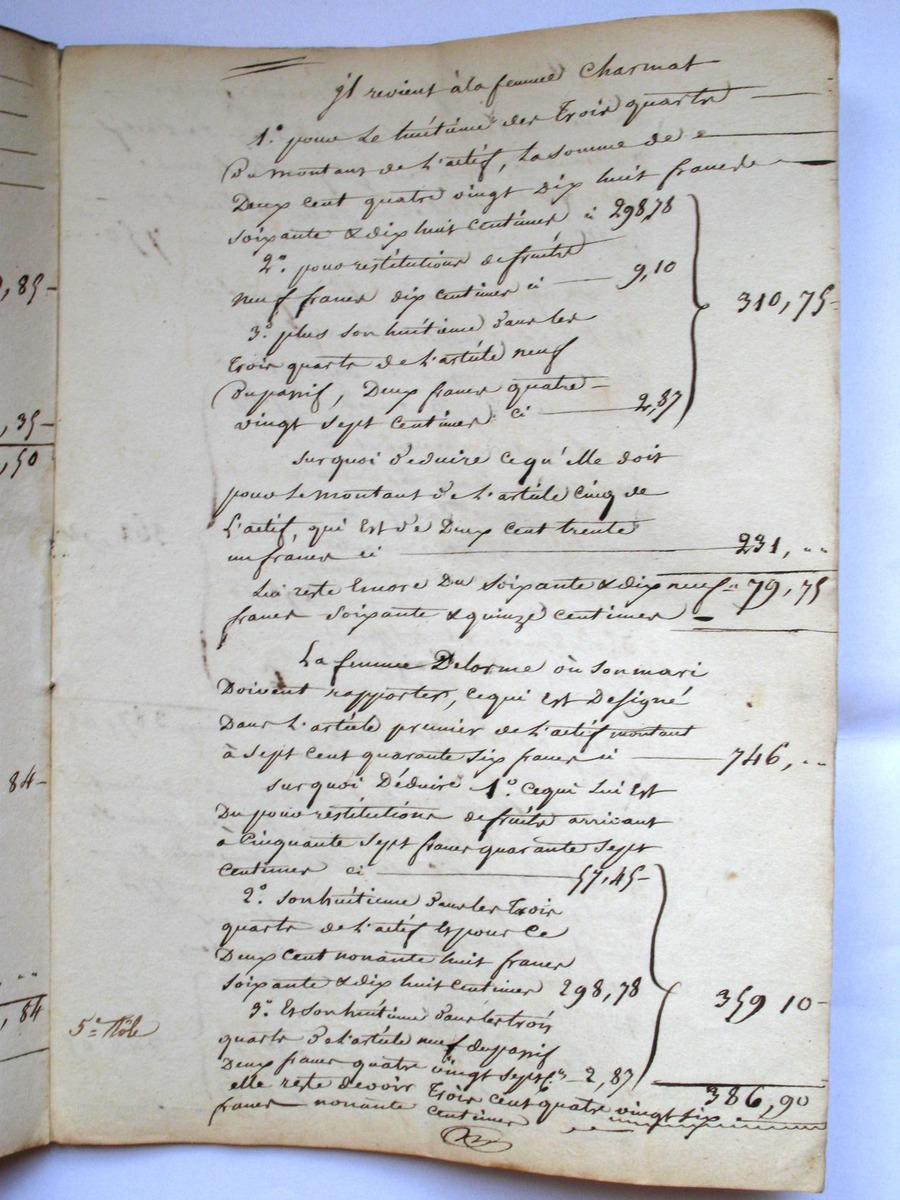 , 85-
, 35-
, 50
84-
, 84
jl revient à la femme Charmat
1.° pour Le huitième des Trois quarts
Du montant de L'actif, La somme de
Deux cent quatre vingt Dix huit francs
soixante & dix huit centimes ci 298,78
2.° pour restitutions de fruits
neuf francs dix centimes ci 9,10
310,75
3.° plus son huitième dans les
Trois quarts de L'article neuf
Du passif, Deux francs quatre-
vingt sept centimes ci 2,87
sur quoi déduire ce qu'elle doit
pour Le montant de L'article cinq de
L'actif, qui Est de Deux cent trente
un francs ci 231, ..
Lui reste Encore Du soixante & dix neuf 79,75
francs soixante & quinze centimes
La femme Delorme où son mari
Doivent rapporter, ce qui Est Designé
Dans L'article premier de L'actif montant
à sept cent quarante six francs ci 746, ..
sur quoi Déduire 1.° ce qui Lui Est
Du pour restitutions de fruits arrivant
à cinquante sept francs quarante sept
centimes ci 57,45
2.° son huitième dans les Trois
quarts de L'actif Et pour Ce
Deux cent nonante huit francs
soixante & dix huit centimes 298,78
359 10-
3.° Et son huitième dans les trois
quarts de L'article neuf du passif
Deux francs quatre vingt sept c.es 2,87
elle reste devoir Trois cent quatre vingt six 386,90
francs nonante centimes
5.e Rôle